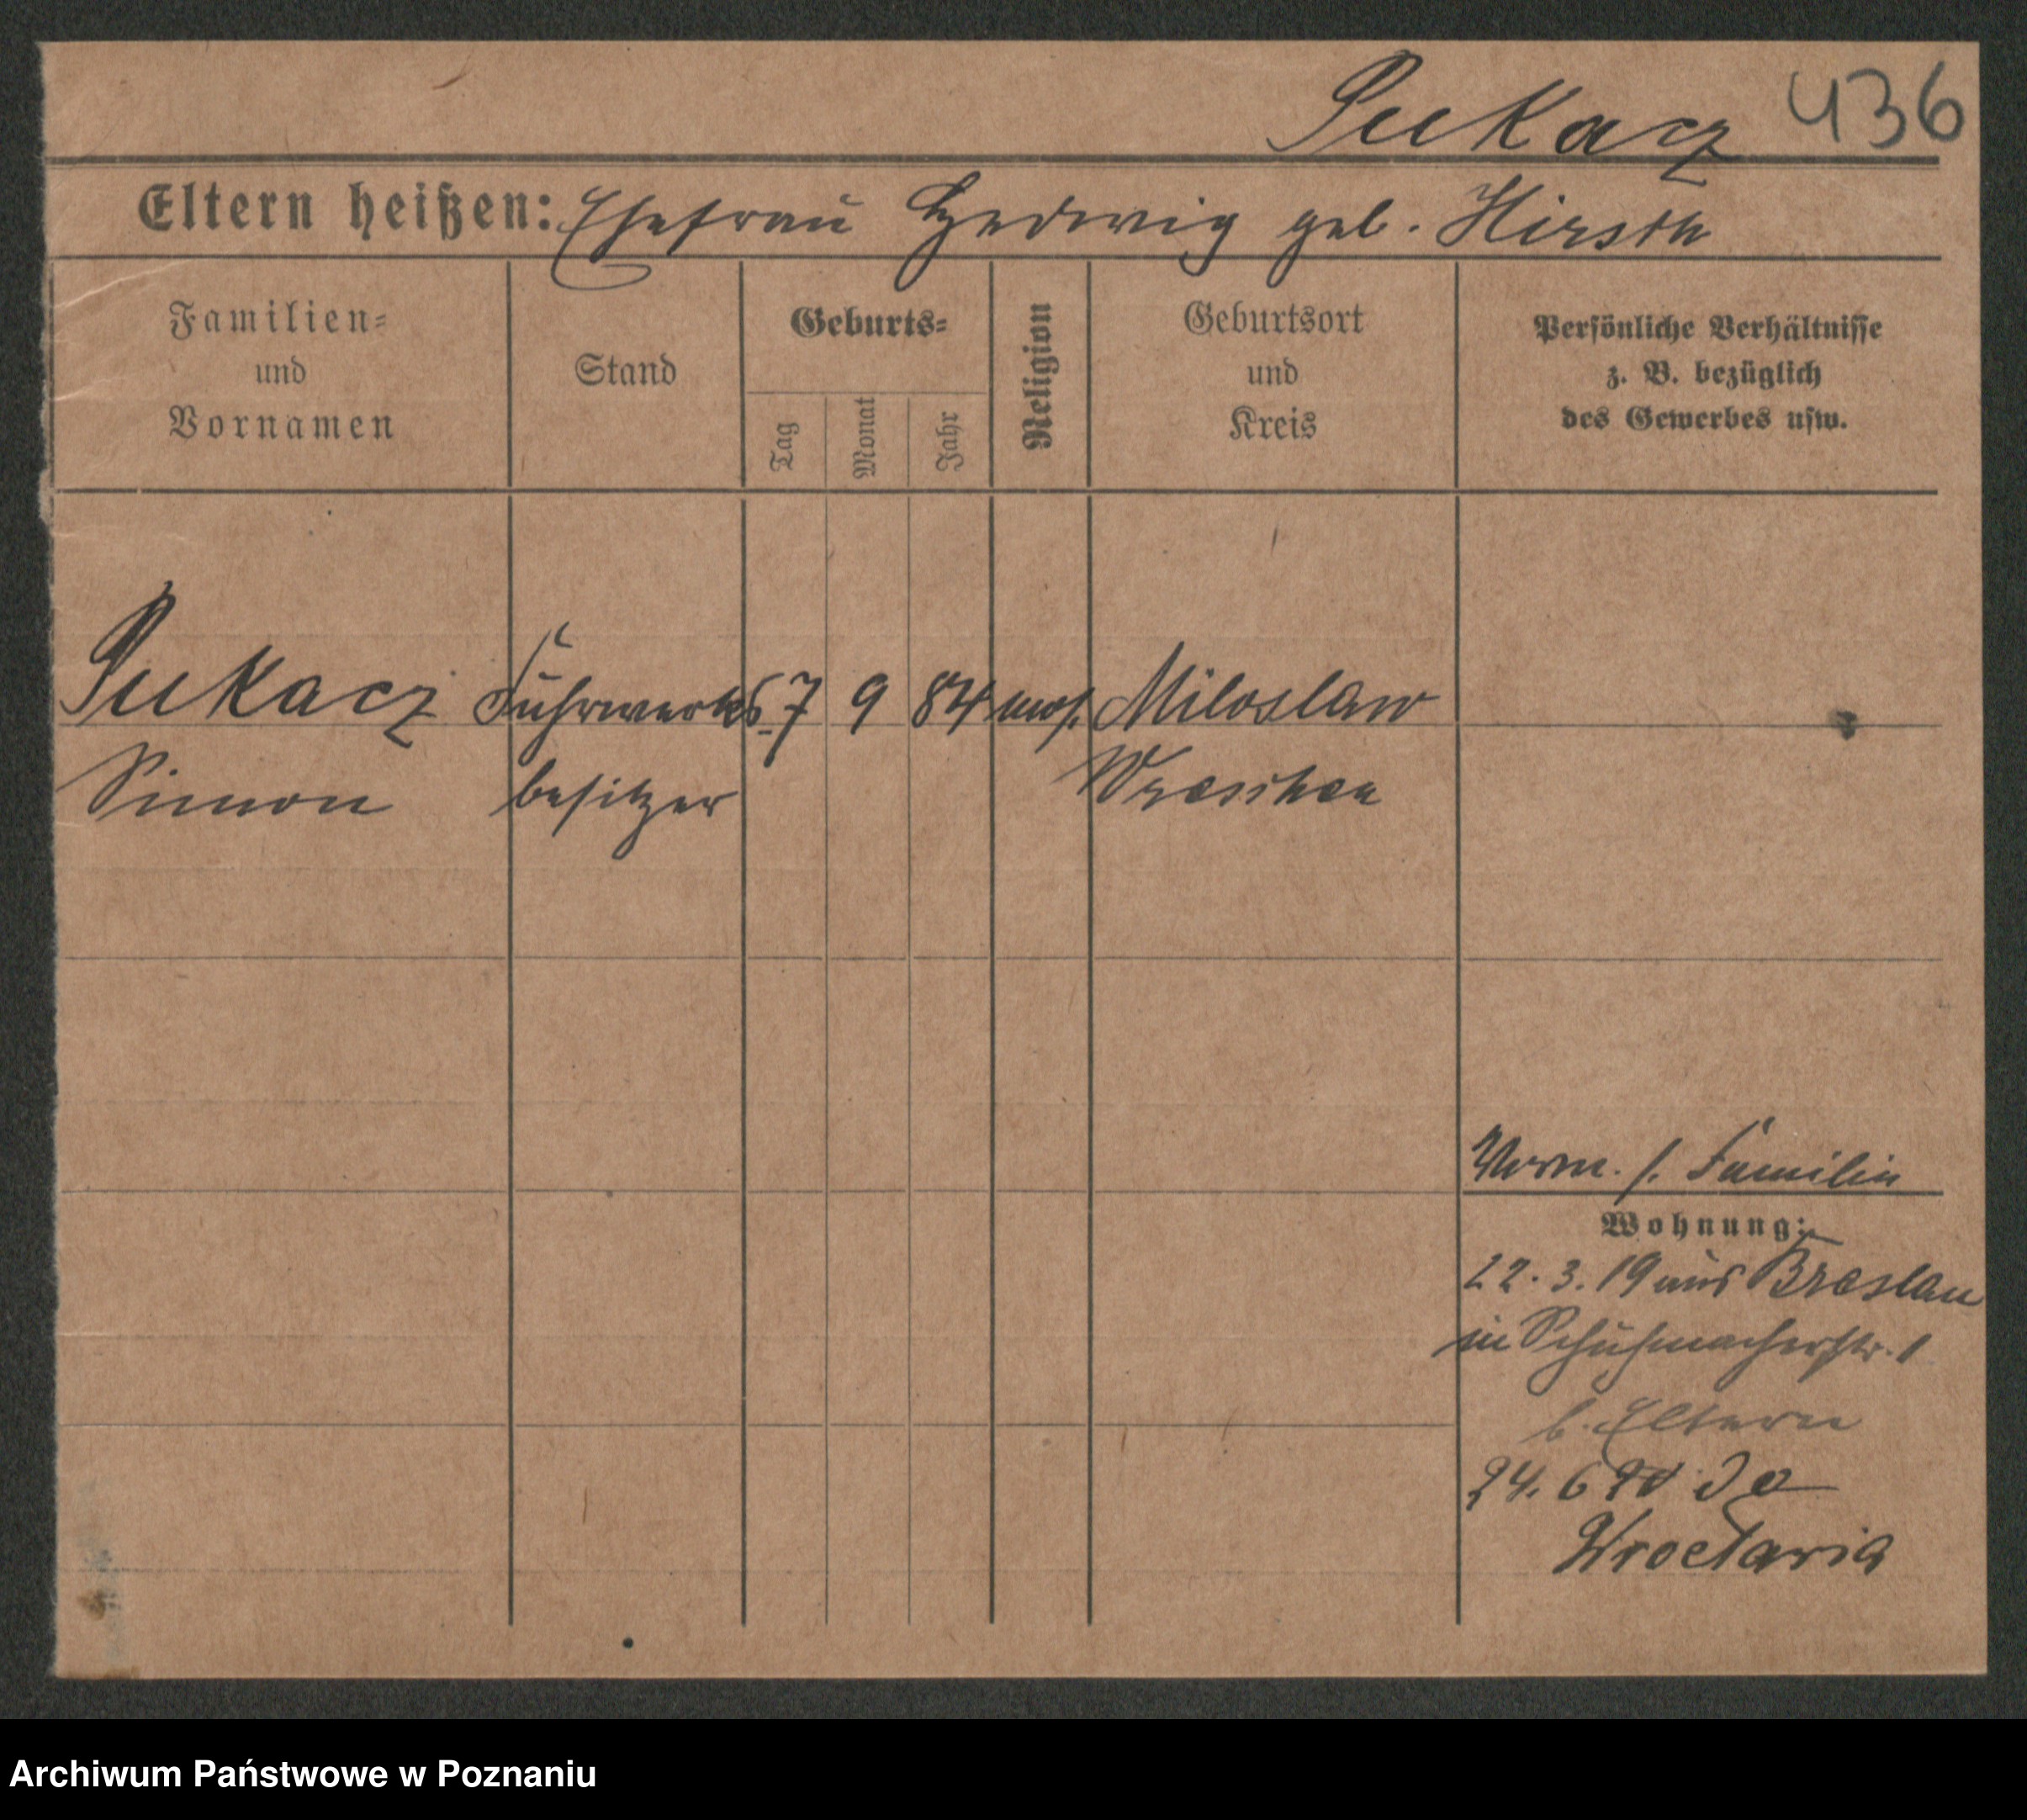 Pukacz 436
Eltern heißen: Ehefrau Hedwig geb. Hirsch
Familien= und Vornamen
Stand
Geburts=
Tag
Monat
Jahr
Religion
Geburtsort und Kreis
Persönliche Verhältnisse
z. B. bezüglich
des Gewerbes usw.
Pukacz Fuhrwerks 7 9 84 mos. Miloslaw
Simon besitzer Wreschen
Verm. s. Familie
Wohnung:
22. 3. 19 aus Breslau
in Schuhmacherstr. 1
b. Eltern
24. 6 20 do
Wrocławia
Archiwum Państwowe w Poznaniu